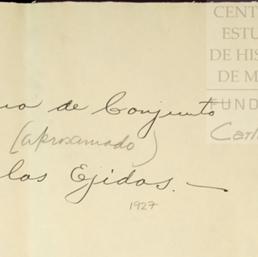 CENT
ESTU
DE HIS
DE M
FUND
Carl
no de Conjunto
(aproximado)
los Ejidos.—
1927